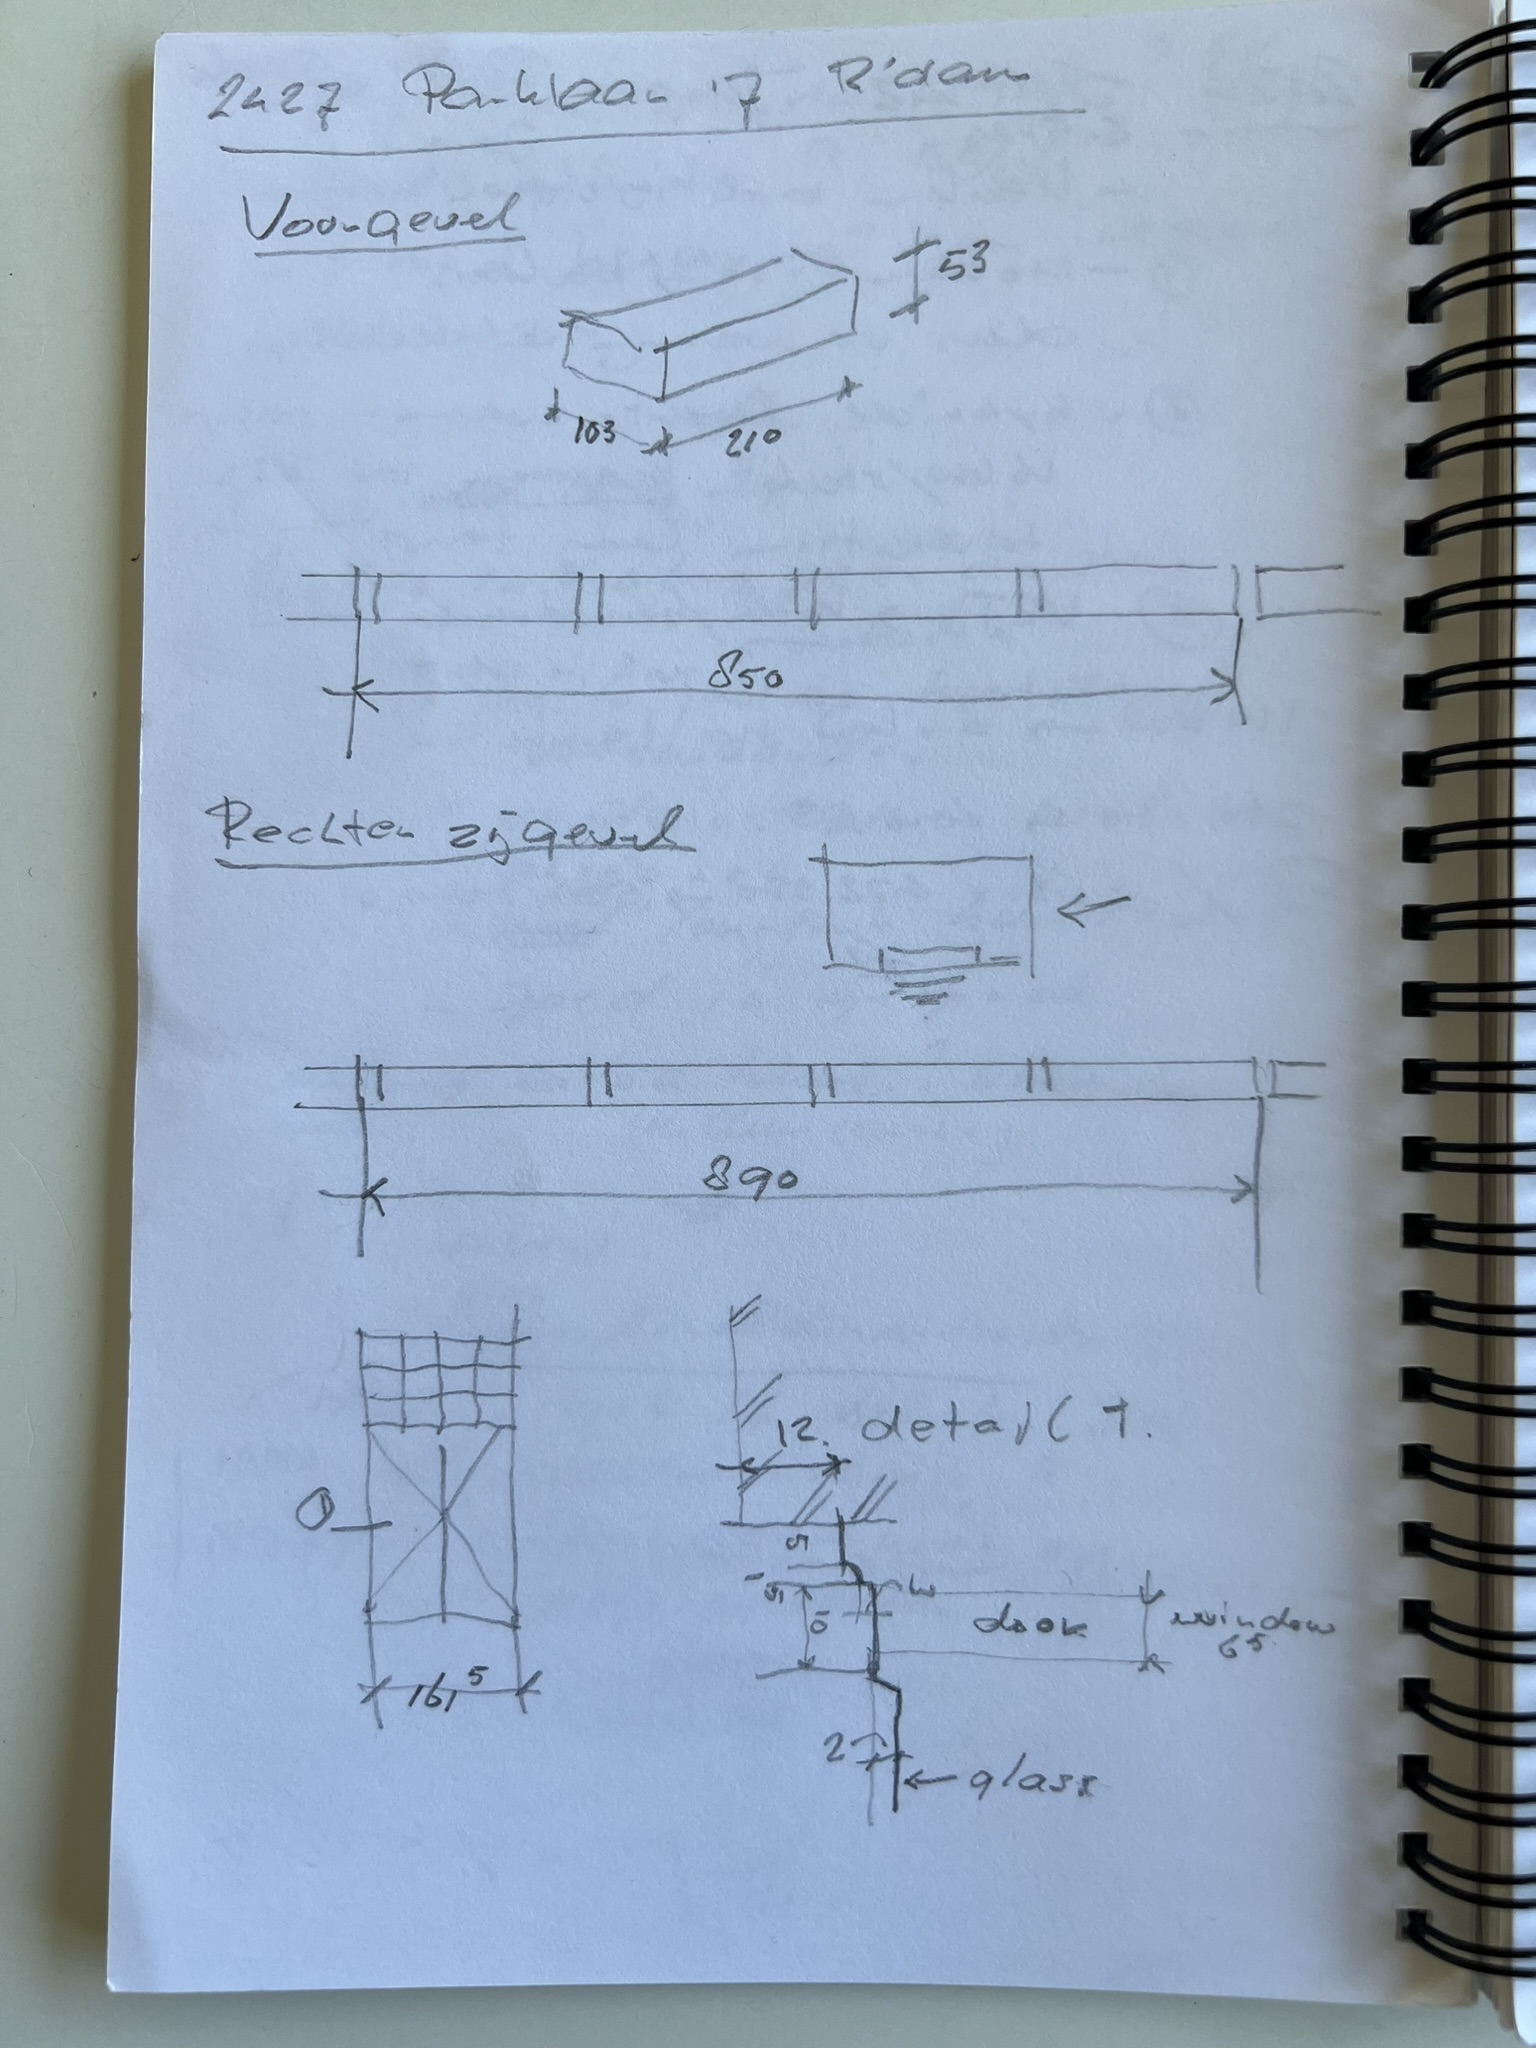 2427 Parklaan 17 R'dam
Voorgevel
53
103
210
850
Rechter zijgevel
890
detail 1.
12.
1
5
door
window
65
161,5
2
glass